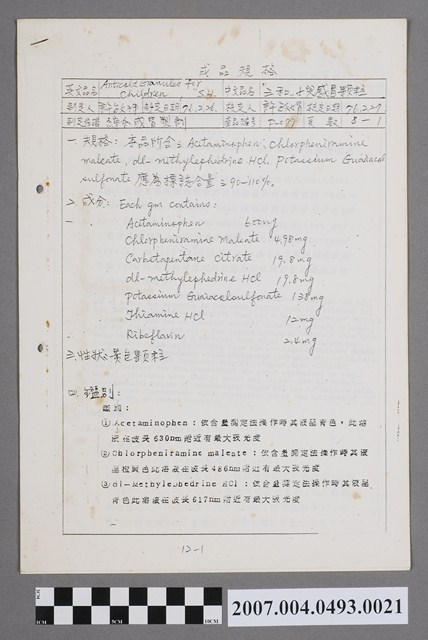 成品規格
英文品名 Anticold Granules for Children, S.H. 中文品名 "三和"小兒感冒顆粒
制定人 許 制定日期 71.2.26. 核定人 許 核定日期 71.2.27
制定依據 綜合感冒製劑 產品編號 頁數 8-1
一. 規格: 本品所含之 Acetaminophen, Chlorpheniramine
maleate, dl-methylephedrine HCl, Potassium Guaiacol
sulfonate 應為標誌含量之90-110%.
二. 成分: Each gm contains:
Acetaminophen 600mg
Chlorpheniramine Maleate 4.98mg
Carbetapentane Citrate 19.8mg
dl-methylephedrine HCl 19.8mg
Potassium Guaiacolsulfonate 138mg
Thiamine HCl 12mg
Riboflavin 2.4mg
三. 性狀: 黃色顆粒
四. 鑑別:
①Acetaminophen:依含量測定法操作時其液呈青色,此溶
液在波長630nm附近有最大吸光度
②Chlorpheniramine maleate:依含量測定法操作時其液
呈橙黃色此溶液在波長486nm附近有最大吸光度
③dl-Methylephedrine HCl:依含量測定法操作時其液呈
青色此溶液在波長617nm附近有最大吸光度
12-1
1CM 5CM 10CM
2007.004.0493.0021